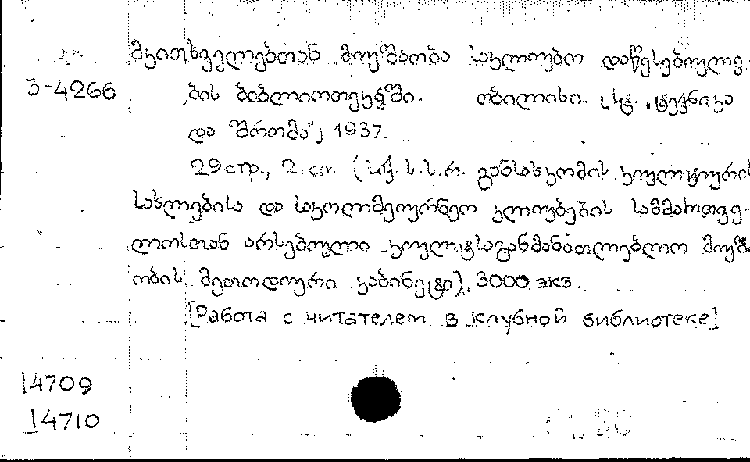 მკითხველებთან მოუშაობა საკლოუბო დაწესებოულე-
3-4266 ბის ბიბლიოთეკეში. თბილისი. სტ. „ტექნიკა
და შრომა“, 1937.
29 стр., 2 см. (საქ. ს.ს.რ. განსახკომის კოულტოურის
სახლებისა და საკოლმეოურნეო კლოუბების სამმართვე-
ლოსთან არსებოული კოულტსაგანმანათლებლო მოუშა-
ობის მეთოდოური კაბინეტი), 3000 экз.
[Работа с читателем в клубной библиотеке]
14709
14710